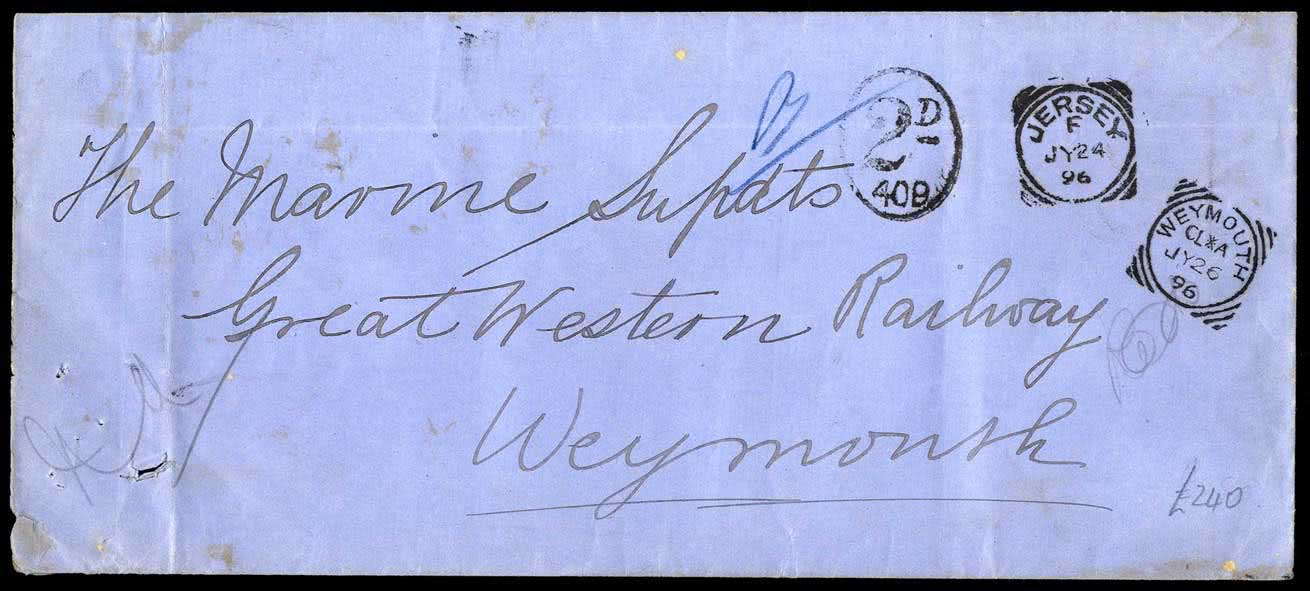 The Marine Supdts
Great Western Railway
Weymouth
2D
409
JERSEY
F
JY 24
96
WEYMOUTH
CL*A
JY 26
96
£240